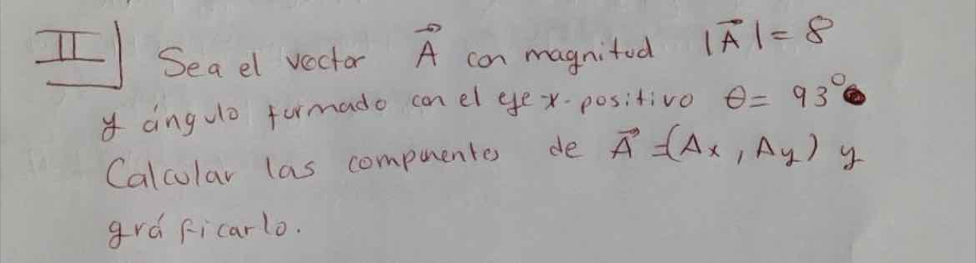 II] Sea el vector A⃗ con magnitud |A⃗| = 8
y ángulo formado con el eje-x-positivo θ = 93°
Calcular las componentes de A⃗ = (Ax, Ay) y
gráficarlo.